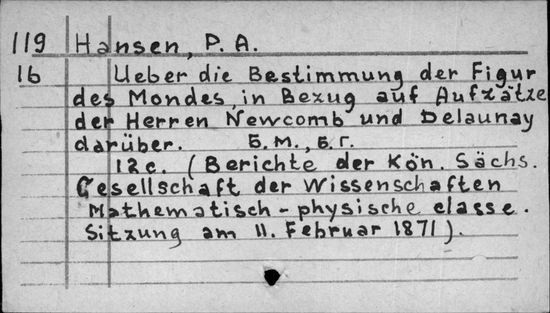 119 Hansen, P. A.
16 Ueber die Bestimmung der Figur
des Mondes, in Bezug auf Aufxätze
der Herren Newcomb und Delaunay
darüber. Б.М., Б.Г.
12 с. (Berichte der Kön. Sächs.
Gesellschaft der Wissenschaften
Mathematisch-physische classe.
Sitzung am 11. Februar 1871).